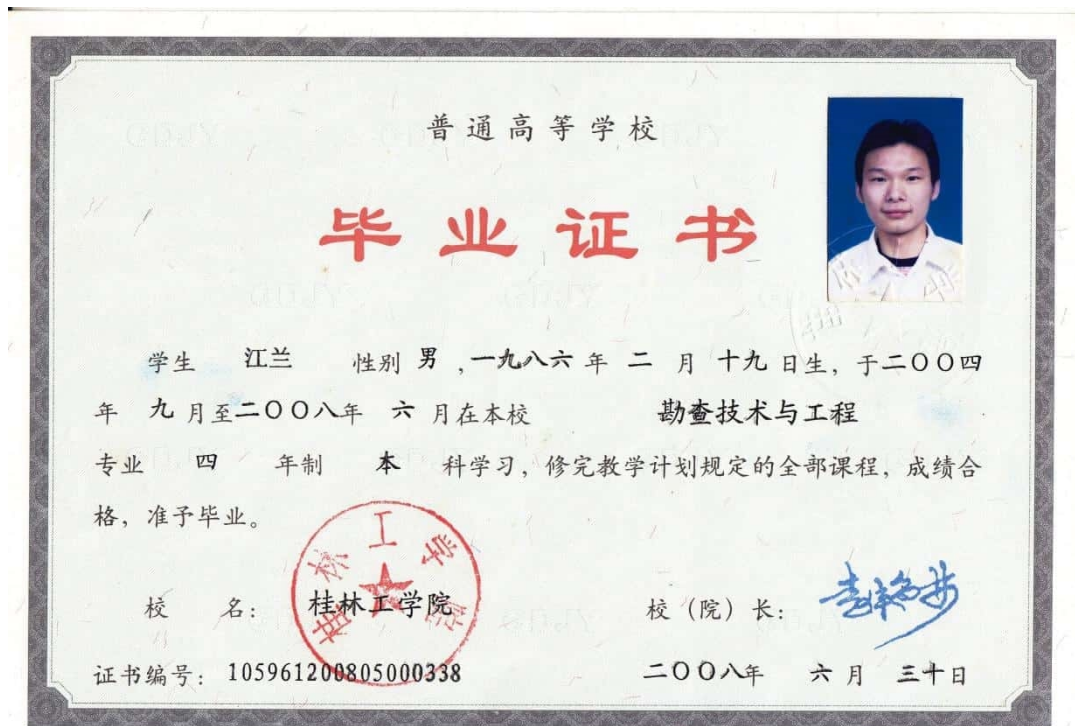 普通高等学校
毕业证书
学生 江兰 性别 男 ,一九八六 年 二 月 十九 日生, 于二〇〇四
年 九 月至二〇〇八年 六 月在本校 勘查技术与工程
专业 四 年制 本 科学习, 修完教学计划规定的全部课程, 成绩合
格, 准予毕业。
桂林工学院
校 名: 桂林工学院 校 (院) 长:
证书编号: 105961200805000338 二〇〇八年 六 月 三十日